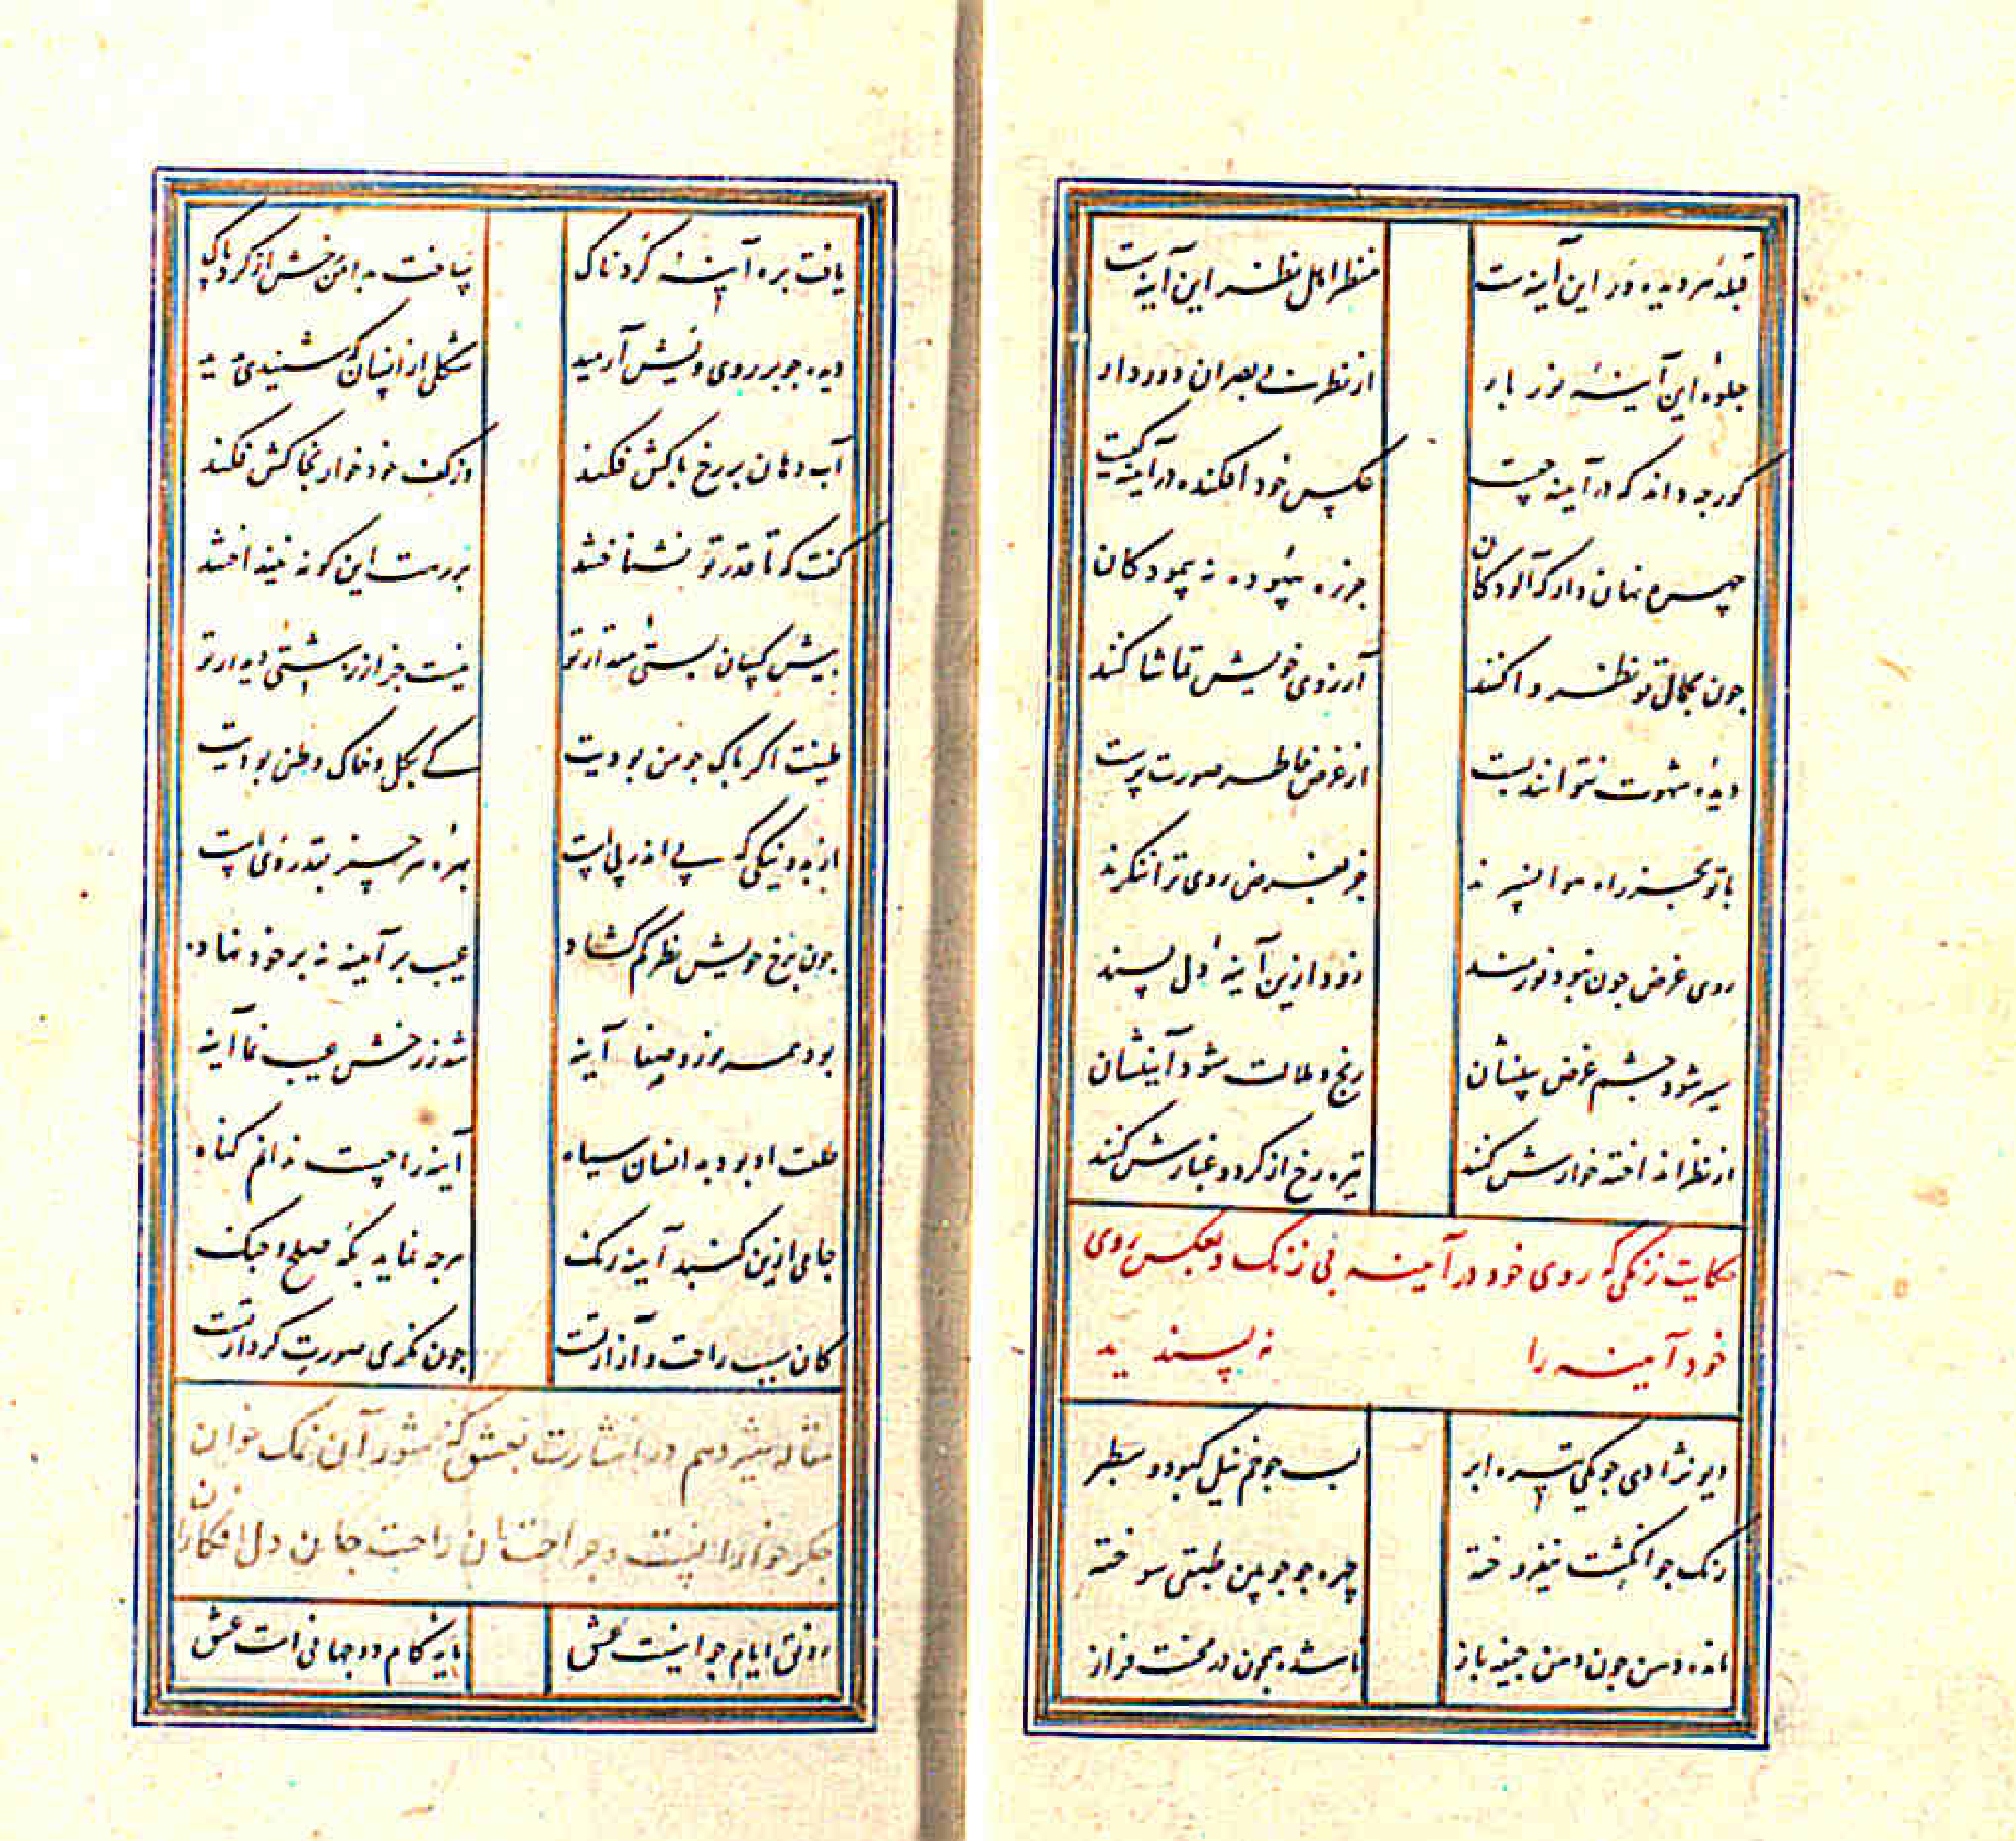 قبلهٔ هر دیده ور این آینه است منظر اهل نظر این آینه است
جلوهٔ این آینهٔ نور بار از نظر بی بصران دور دار
کور جه داند که در آینه جیست عکس خود افکنده در آینه کیست
چهره نهان دار که آلودکان جز ره بیهوده نه پیمودکان
جون بجمال تو نظر وا کنند آرزوی خویش تماشا کنند
دیدهٔ شهوت نتوانند بست از غرض خاطر صورت پرست
با تو بجز راه هوا نسپرند جز بغرض روی ترا ننکرند
روی غرض جون نبود نورمند زود ازین آینهٔ دل پسند
سیر شود جشم غرض بینشان رنج و ملالت شود آیینشان
از نظر انداخته خوارش کنند تیره رخ از کرد و غبارش کنند
حکایت زنکی که روی خود در آینه بی زنک دید و بعکس روی
خود آینه را نه پسندید
دیو نژادی جو یکی تیره ابر لب جو خم نیل کبود و سطبر
رنک جو انکشت نیفروخته چهره جو جوبین طبقی سوخته
مانده دهن جون دهن جیفه باز ناشده همچون در محنت فراز
یافت بره آینهٔ کردناک ساخت بدامن رخش از کرد پاک
دیده جو بر روی ویش آرمید شکلی از انسان که شنیدی بدید
آب دهان بر رخ پاکش فکند وز کف خود خوار بخاکش فکند
کفت که تا قدر تو نشناختند بر رهت این کونه نینداختند
بیش کسان پستی مقدار تو نیست جز از زشتی دیدار تو
طینت اکر پاک جو من بودیت کی بکل و خاک وطن بودیت
از بد و نیکی که پی اندر پی است بهرهٔ هر چیز بقدر وی است
جون برخ خویش نظر کم کشاد عیب بر آینه نه بر خود نهاد
بود همه نور و صفا آینه شد ز رخش عیب نما آینه
طلعت او بود بدانسان سیاه آینه را چیست ندانم کناه
جامی ازین کنبد آینه رنک هرجه نماید بکه صلح و جنک
کان سبب راحت و آزار تست جون نکری صورت کردار تست
مقاله هیزدهم در اشارت بعشق که شور آن نمک خوان
جکر خواران است و جراحت آن راحت جان دل افکاران
رونق ایام جوانیست عشق مایهٔ کام دو جهانی است عشق